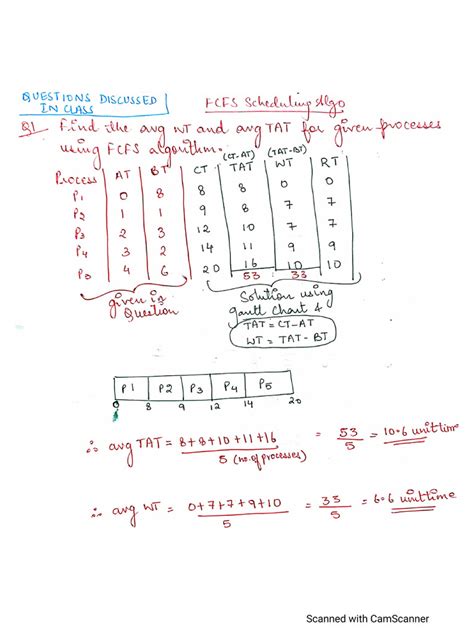 QUESTIONS DISCUSSED
IN CLASS
FCFS Scheduling Algo
Q1 Find the avg WT and avg TAT for given processes
using FCFS algorithm.
(CT-AT) (TAT-BT)
Process AT BT CT TAT WT RT
P1 0 8 8 8 0 0
P2 1 1 9 8 7 7
P3 2 3 12 10 7 7
P4 3 2 14 11 9 9
P5 4 6 20 16 10 10
53 33
given in
Question
Solution using
gantt chart &
TAT = CT-AT
WT = TAT-BT
P1 P2 P3 P4 P5
0 8 9 12 14 20
∴ avg TAT = 8+8+10+11+16 = 53 = 10.6 unit time
5 (no. of processes) 5
∴ avg WT = 0+7+7+9+10 = 33 = 6.6 unit time
5 5
Scanned with CamScanner